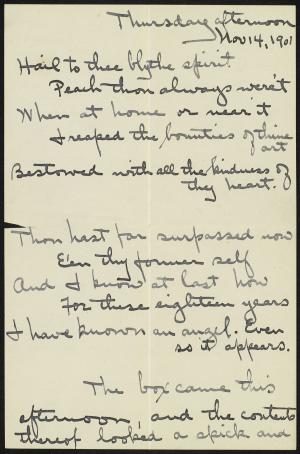 Thursday afternoon
Nov 14, 1901
Hail to thee blythe spirit!
Peach thou always wer't
When at home or near it
I reaped the bounties of thine
art
Bestowed with all the kindness of
thy heart.
Thou hast far surpassed now
E'en thy former self
And I know at last how
For these eighteen years
I have known an angel. Even
so it appears.
The box came this
afternoon, and the contents
thereof looked a spick and